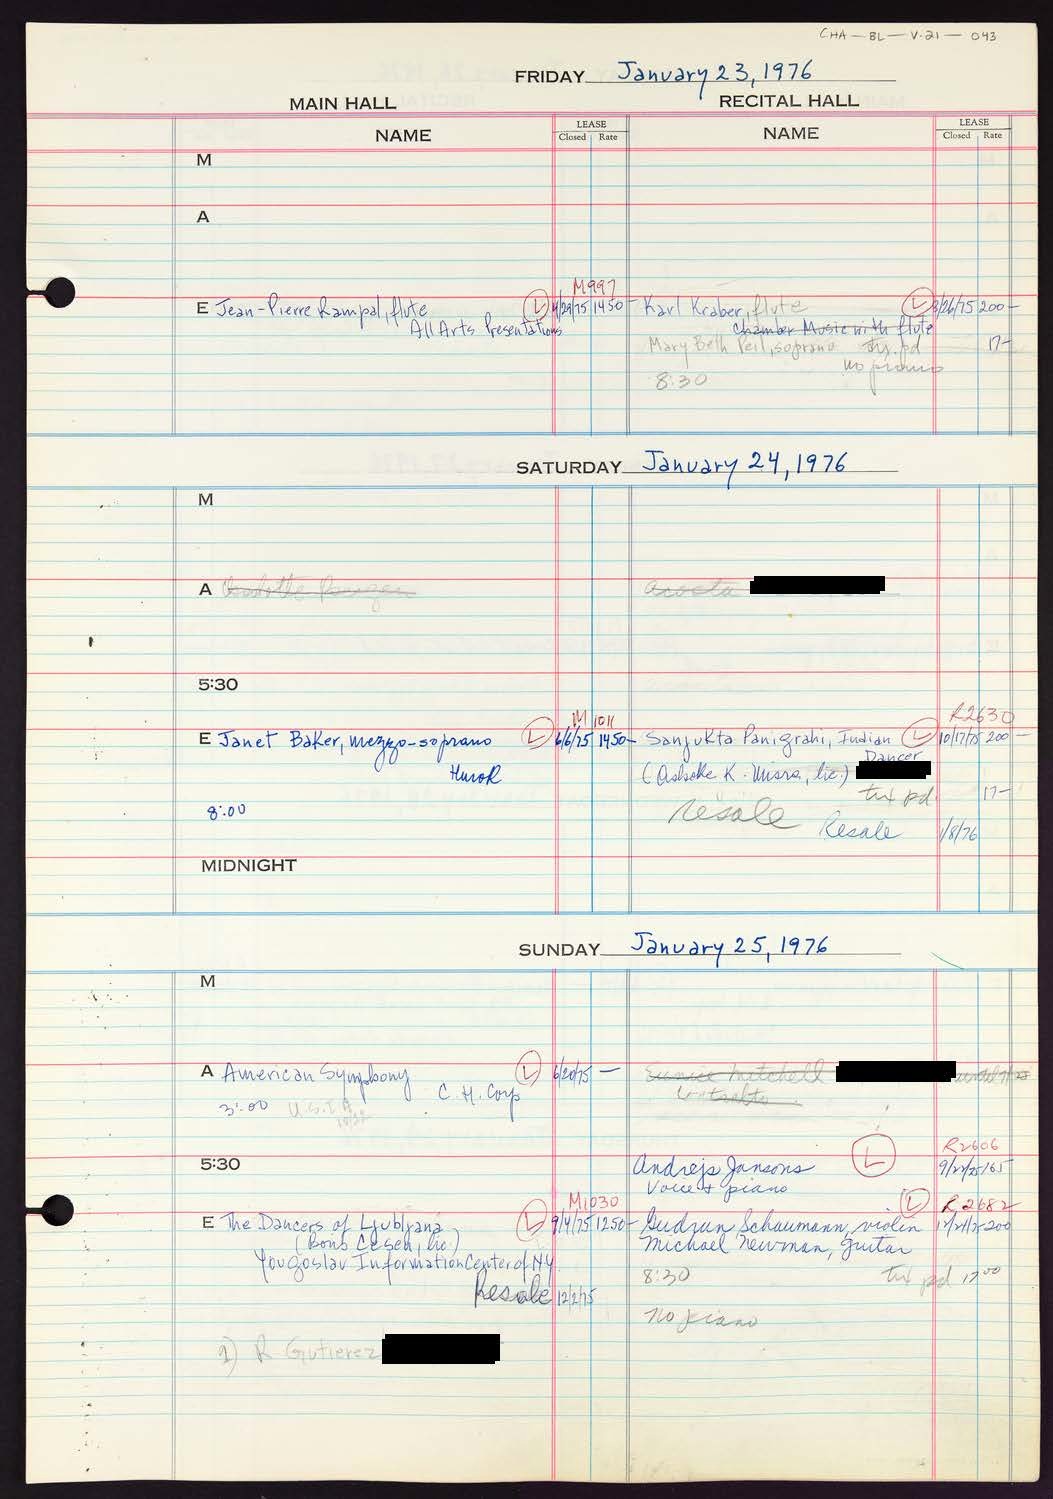 CHA-BL-V.21-043
FRIDAY January 23, 1976
MAIN HALL
RECITAL HALL
NAME
LEASE
Closed Rate
NAME
LEASE
Closed Rate
M
A
M997
E Jean-Pierre Rampal, flute L 4/29/75 1450-
All Arts Presentations
Karl Kraber, flute L 8/26/75 200-
Chamber Music with flute
Mary Beth Peil, soprano pd 17-
no piano
8:30
SATURDAY January 24, 1976
M
A
5:30
M 1011
E Janet Baker, mezzo-soprano L 6/6/75 1450-
Hurok
8:00
R2630
Sanjukta Panigrahi, Indian L 10/17/75 200-
Dancer
(Ashoke K. Misra, lic.)
txt pd. 17-
resale Resale 1/8/76
MIDNIGHT
SUNDAY January 25, 1976
M
A American Symphony L 6/20/75 -
3:00 U.S.I.A. C.H. Corp
10/22
Eunice Mitchell
Contralto
5:30
R2606
Andrejs Jansons L 9/22/75 165
Voice & piano
M1030
E The Dancers of Ljubljana L 9/4/75 1250-
(Boris Cesen, lic.)
Yougoslav Information Center of NY
Resale 12/2/75
1) R Gutierez
R 2682
Gudrun Schaumann, violin L 200
Michael Newman, guitar
8:30 txt pd 17 00
no piano